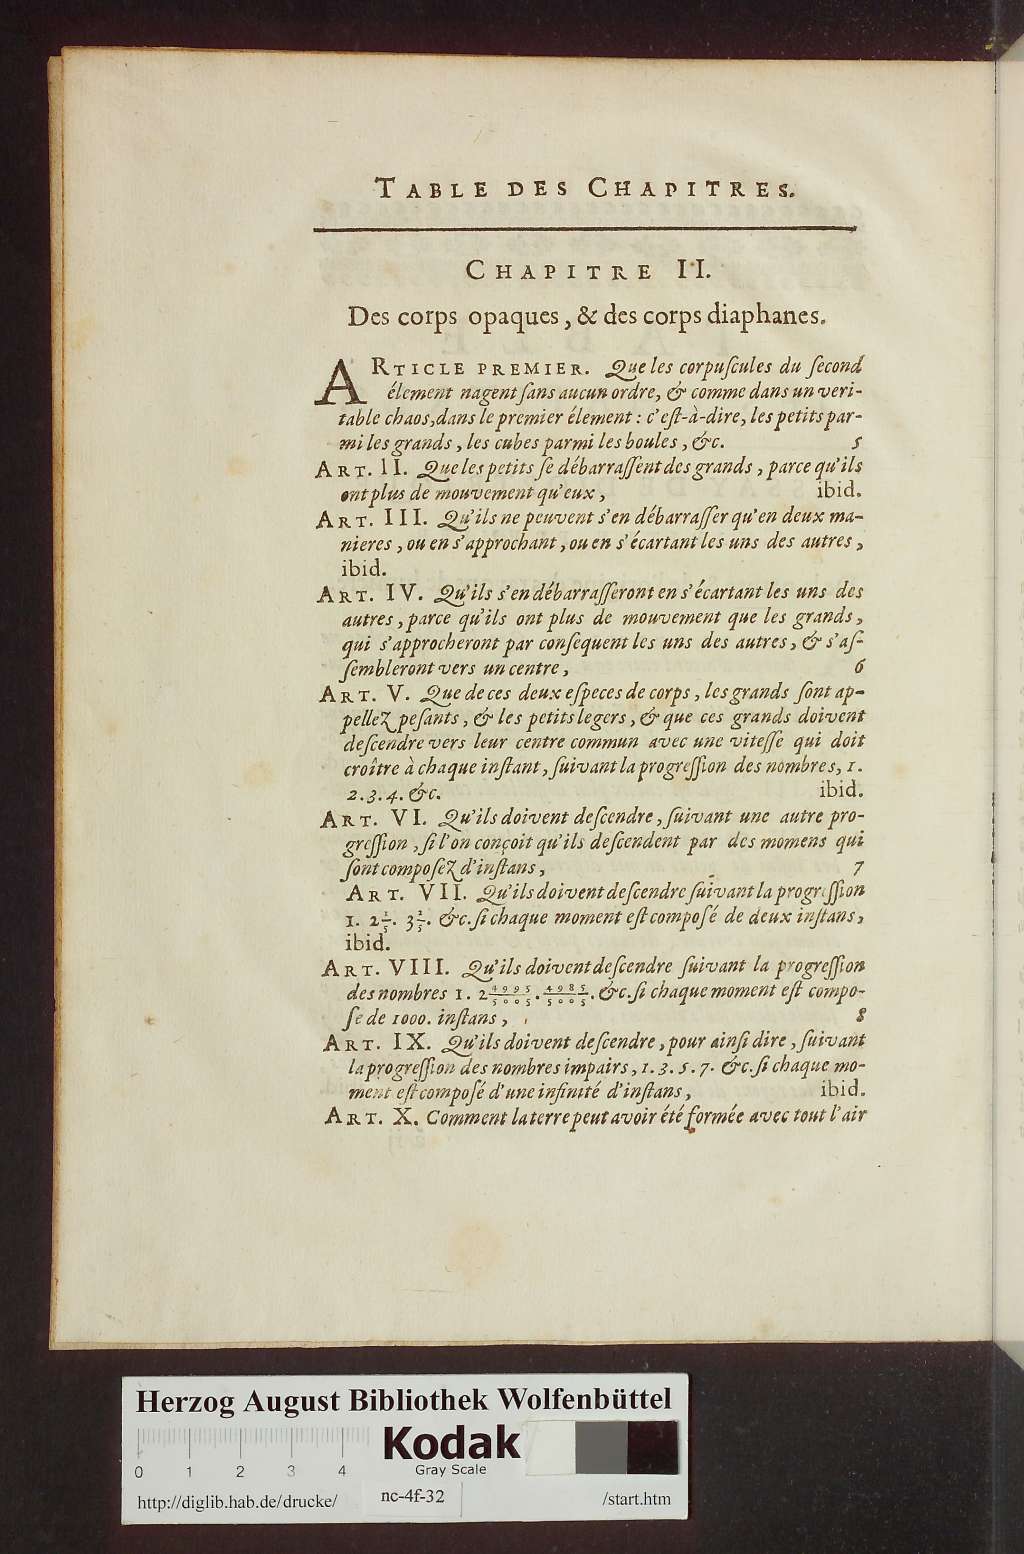 TABLE DES CHAPITRES.
CHAPITRE II.
Des corps opaques, & des corps diaphanes.
ARTICLE PREMIER. Que les corpuſcules du ſecond
élement nagent ſans aucun ordre, & comme dans un veri-
table chaos, dans le premier élement : c'eſt-à-dire, les petits par-
mi les grands, les cubes parmi les boules, &c. 5
ART. II. Que les petits ſe débarraſſent des grands, parce qu'ils
ont plus de mouvement qu'eux, ibid.
ART. III. Qu'ils ne peuvent s'en débarraſſer qu'en deux ma-
nieres, ou en s'approchant, ou en s'écartant les uns des autres,
ibid.
ART. IV. Qu'ils s'en débarraſſeront en s'écartant les uns des
autres, parce qu'ils ont plus de mouvement que les grands,
qui s'approcheront par conſequent les uns des autres, & s'aſ-
ſembleront vers un centre, 6
ART. V. Que de ces deux eſpeces de corps, les grands ſont ap-
pellez peſants, & les petits legers, & que ces grands doivent
deſcendre vers leur centre commun avec une viteſſe qui doit
croître à chaque inſtant, ſuivant la progreſſion des nombres, 1.
2. 3. 4. &c. ibid.
ART. VI. Qu'ils doivent deſcendre, ſuivant une autre pro-
greſſion, ſi l'on conçoit qu'ils deſcendent par des momens qui
ſont compoſez d'inſtans, 7
ART. VII. Qu'ils doivent deſcendre ſuivant la progreſſion
1. 2 2/5. 3 2/5. &c. ſi chaque moment eſt compoſé de deux inſtans,
ibid.
ART. VIII. Qu'ils doivent deſcendre ſuivant la progreſſion
des nombres 1. 2 4995/5005. 4985/5005. &c. ſi chaque moment eſt compo-
ſe de 1000. inſtans, 8
ART. IX. Qu'ils doivent deſcendre, pour ainſi dire, ſuivant
la progreſſion des nombres impairs, 1. 3. 5. 7. &c. ſi chaque mo-
ment eſt compoſé d'une infinité d'inſtans, ibid.
ART. X. Comment la terre peut avoir été formée avec tout l'air
Herzog August Bibliothek Wolfenbüttel
Kodak
Gray Scale
0 1 2 3 4
http://diglib.hab.de/drucke/ nc-4f-32 /start.htm